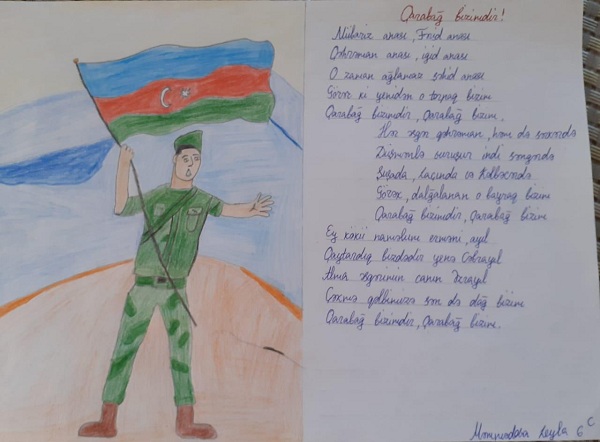 Qarabağ bizimdir!
Mübariz anası, Fərid anası
Qəhrəman anası, igid anası
O zaman ağlamaz şəhid anası
Görər ki yenidən o torpaq bizim
Qarabağ bizimdir, Qarabağ bizim.
Hər əsgər qəhrəman, həm də
Düşmənlə vuruşur indi səngərdə
Şuşada, Laçında və Kəlbəcərdə
Görək, dalğalanan o bayraq bizim
Qarabağ bizimdir, Qarabağ bizim
Ey kökü naməlum erməni ayıl
Qaytardıq bizdədir yenə Cəbrayıl
Alma əsgərinin canın Əzrayıl
Çəkmə qəlbimizə sən də dağ bizim
Qarabağ bizimdir, Qarabağ bizim.
Leyla 6 C